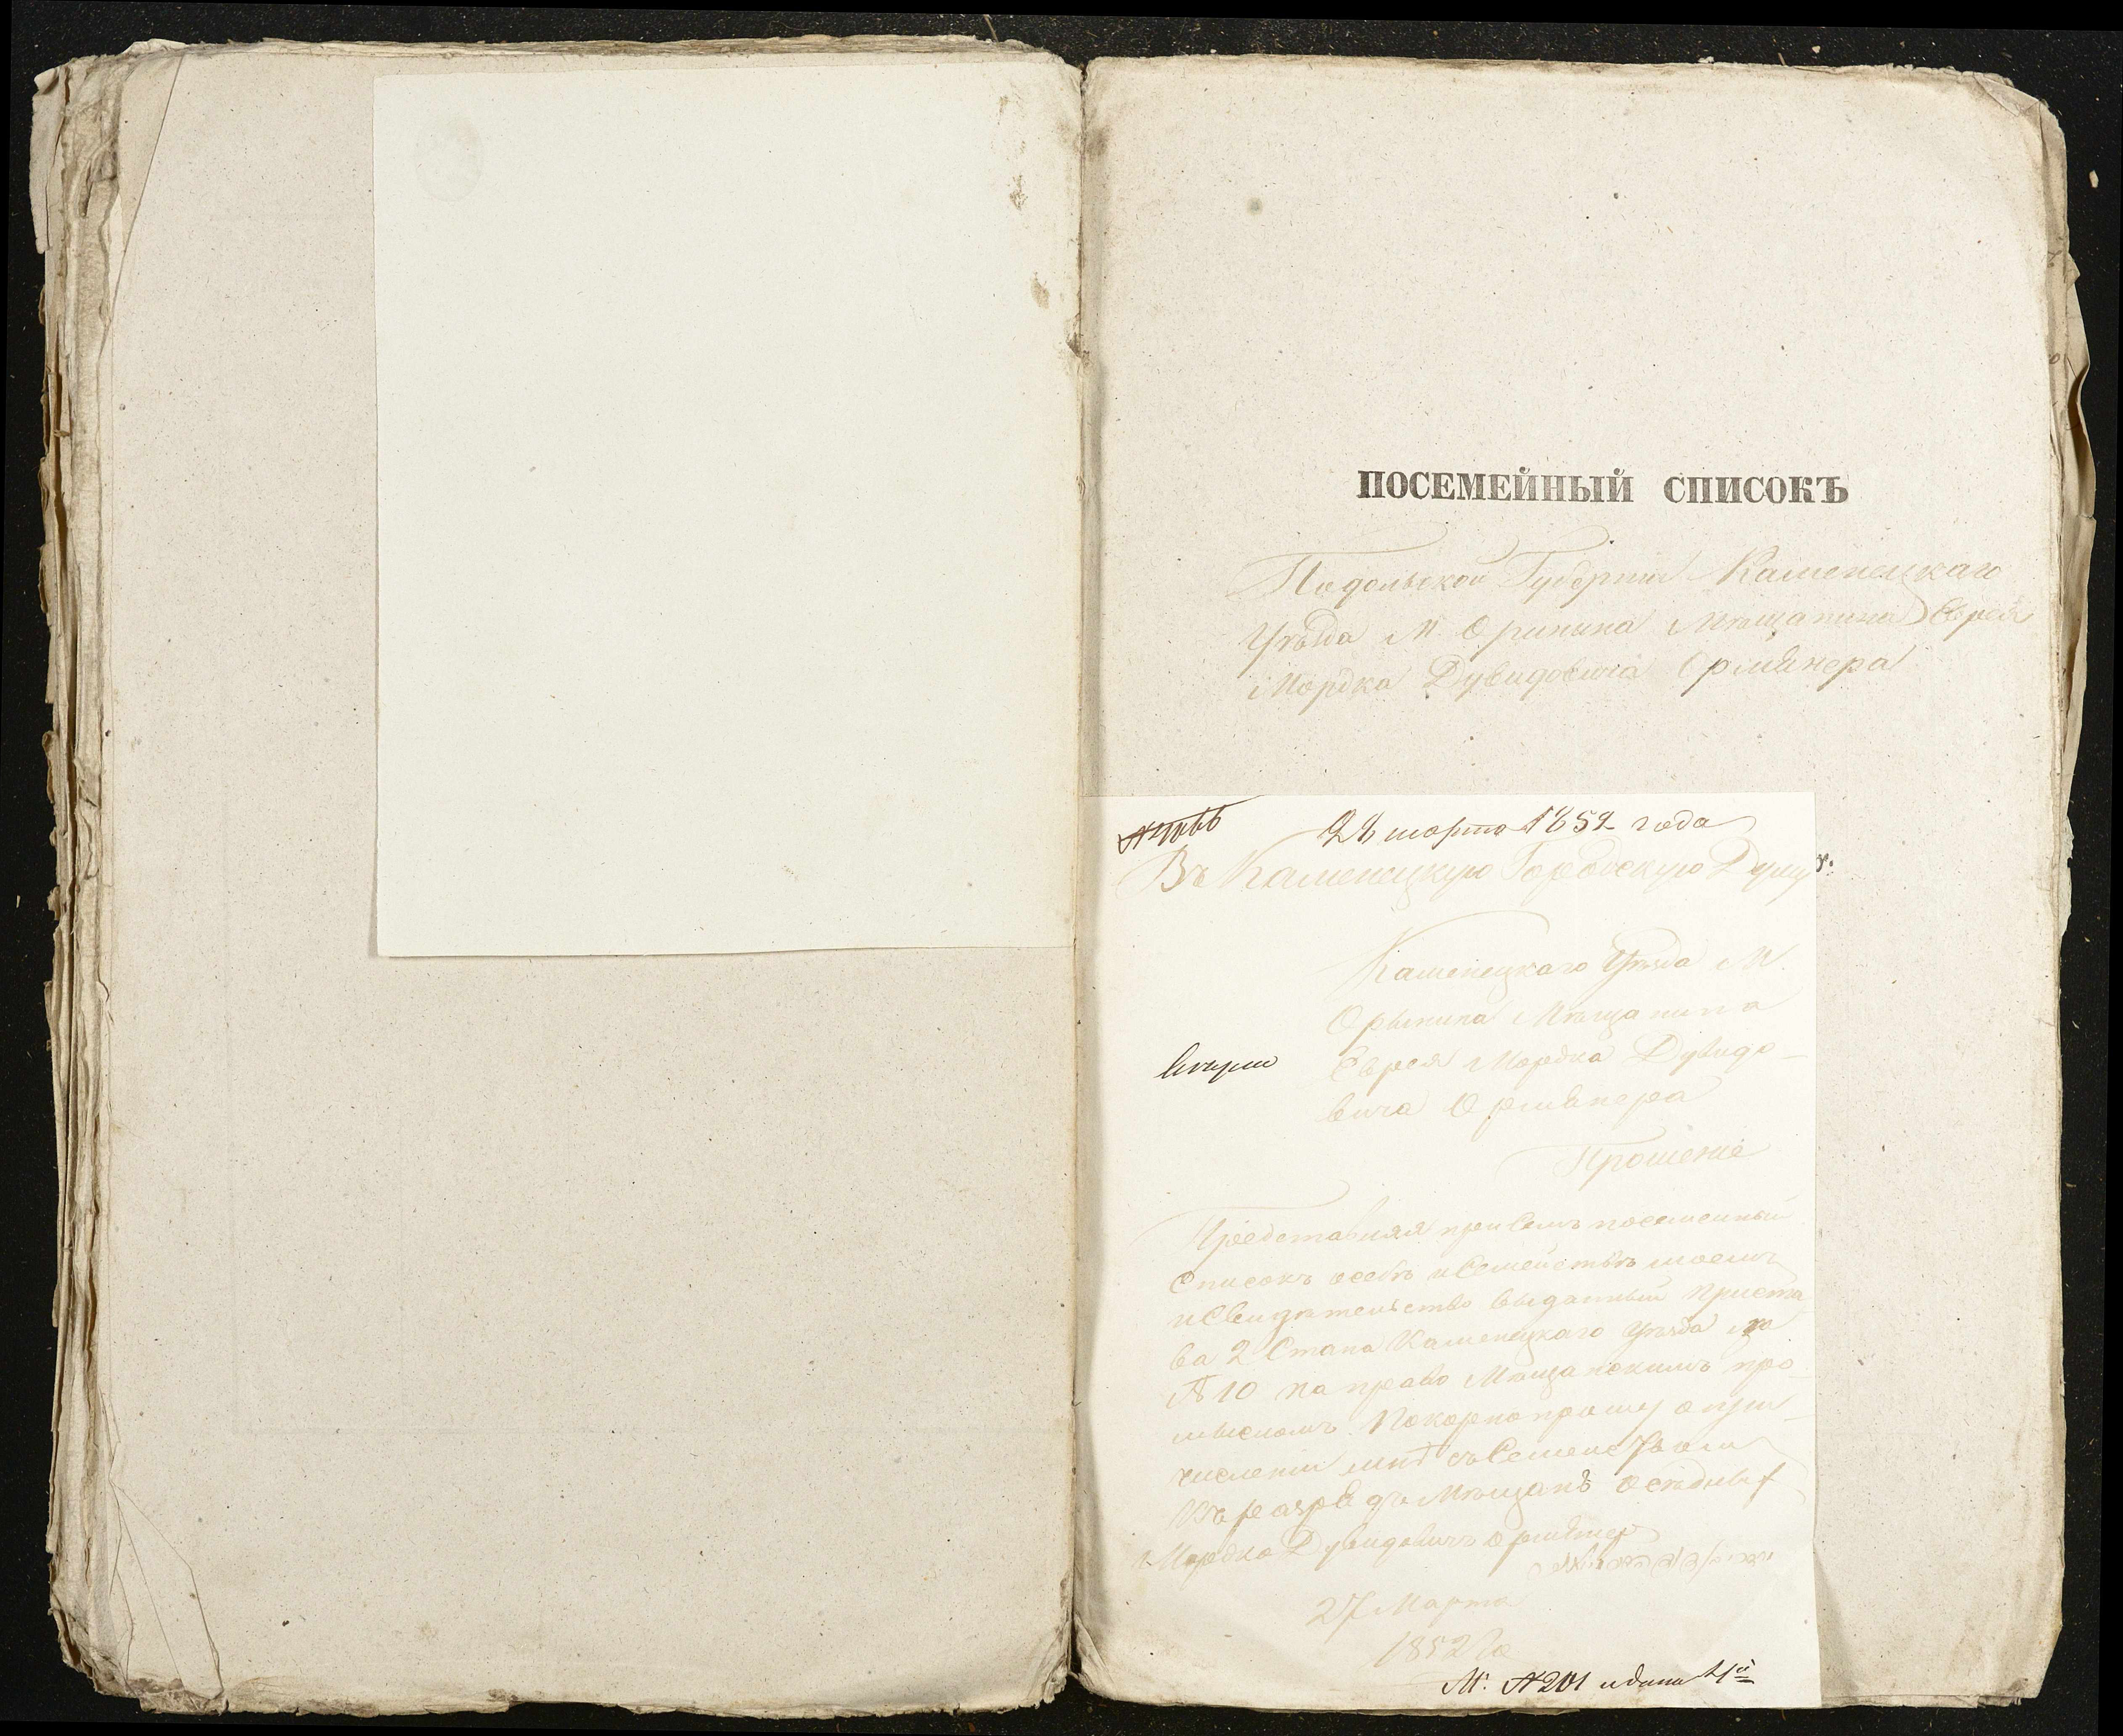 ПОСЕМЕЙНЫЙ СПИСОКЪ
Подольской Губерніи Каменецкаго
Уѣзда М. Оринина Мѣщанина Еврея
Мордка Дувидовича Ормянера
28 марта 1852 года
Въ Каменецкую Городскую Думу
Каменецкаго Уѣзда М.
Орынина Мѣщанина
Еврея Мордка Дувидо-
вича Ормянера
Прошеніе
Представляя при семъ посемейный
Списокъ о себѣ и Семействѣ моемъ
и Свидѣтельство выданный Приста-
ва 2 Стана Каменецкаго Уѣзда за
№ 10 на право Мѣщанскимъ про-
мысломъ. Покорно прошу о при-
численіи мнѣ съ Семействомъ
Въ разрядъ Мѣщанъ осѣдлых
Мордко Дувидовичъ Ормянер
27 Марта
1852 Го
М: № 201